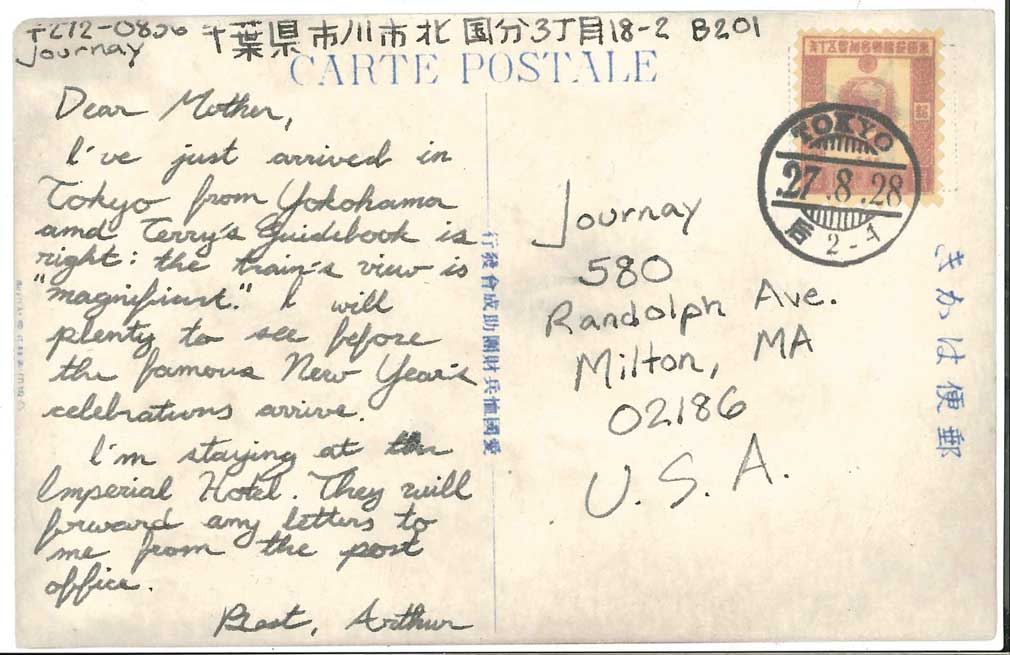 〒272-0836 千葉県市川市北国分3丁目18-2 B201
Journay
CARTE POSTALE
Dear Mother,
I've just arrived in
Tokyo from Yokohama
and Terry's Guidebook is
right: the train's view is
"magnificent." I will
plenty to see before
the famous New Year's
celebrations arrive.
I'm staying at the
Imperial Hotel. They will
forward any letters to
me from the post
office.
Best, Arthur
行發會成助團財兵恤國愛
TOKYO
27.8.28
后 2-4
Journay
580
Randolph Ave.
Milton, MA
02186
U.S.A.
きかは便郵